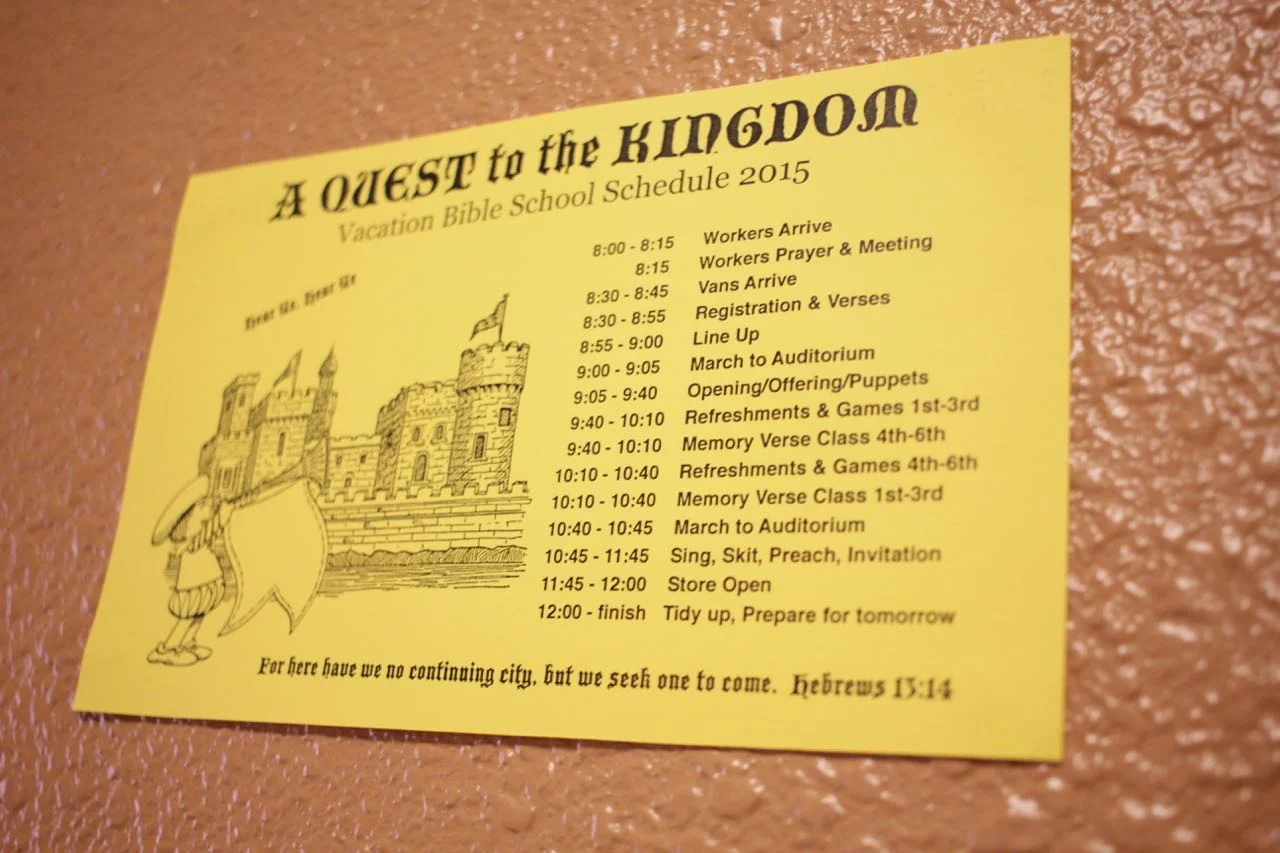 A QUEST to the KINGDOM
Vacation Bible School Schedule 2015
Hear Ye, Hear Ye
8:00 - 8:15 Workers Arrive
8:15 Workers Prayer & Meeting
8:30 - 8:45 Vans Arrive
8:30 - 8:55 Registration & Verses
8:55 - 9:00 Line Up
9:00 - 9:05 March to Auditorium
9:05 - 9:40 Opening/Offering/Puppets
9:40 - 10:10 Refreshments & Games 1st-3rd
9:40 - 10:10 Memory Verse Class 4th-6th
10:10 - 10:40 Refreshments & Games 4th-6th
10:10 - 10:40 Memory Verse Class 1st-3rd
10:40 - 10:45 March to Auditorium
10:45 - 11:45 Sing, Skit, Preach, Invitation
11:45 - 12:00 Store Open
12:00 - finish Tidy up, Prepare for tomorrow
For here have we no continuing city, but we seek one to come. Hebrews 13:14